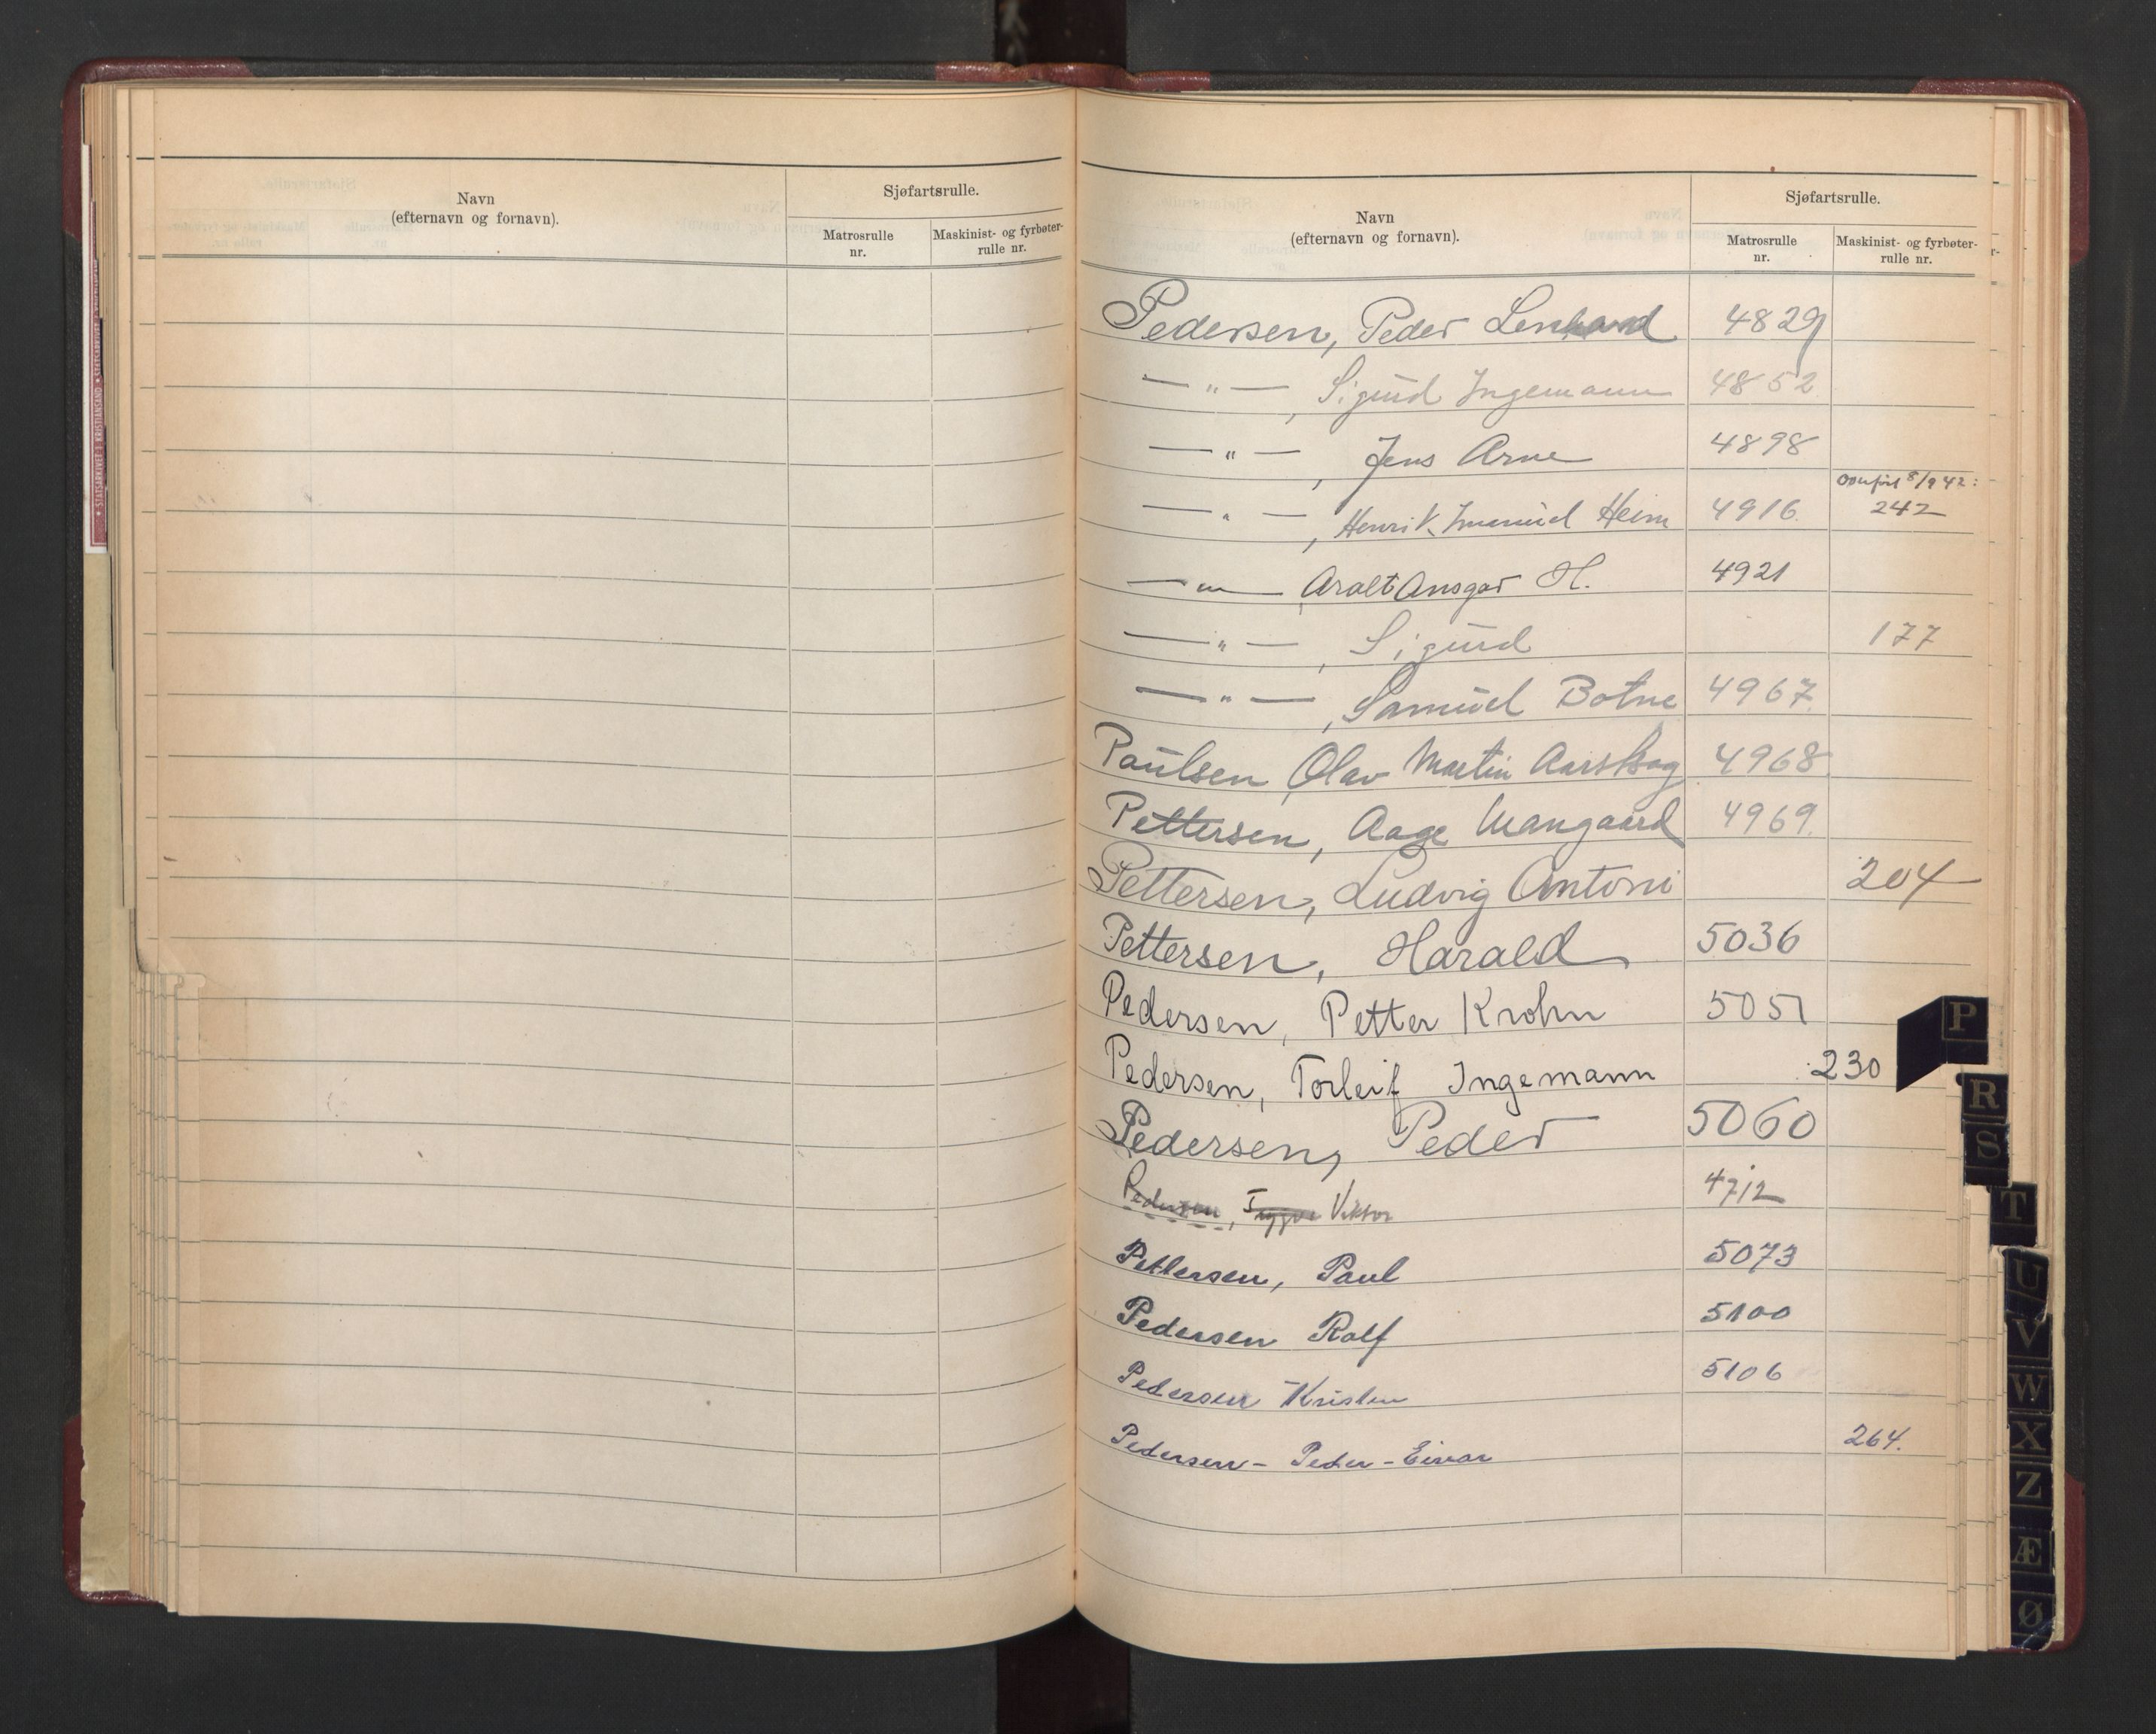 Navn
(efternavn og fornavn).
Sjøfartsrulle.
Matrosrulle
nr.
Maskinist- og fyrbøter-
rulle nr.
Navn
(efternavn og fornavn).
Sjøfartsrulle.
Matrosrulle
nr.
Maskinist- og fyrbøter-
rulle nr.
Pedersen, Peder Lenhard 4829
— " — , Sigurd Ingemann 4852
— " — , Jens Arne 4898
Overført 8/9 42:
— " — , Henrik Imanuel Heim 4916. 242
— " — Aralt Ansgar H. 4921
— " — , Sigurd 177
— " — , Samuel Botne 4967.
Paulsen, Olav Martin Aarskog 4968
Pettersen, Aage Mangaard 4969.
Pettersen, Ludvig Antoni 204
Pettersen, Harald 5036
Pedersen, Petter Krohn 5051
Pedersen, Torleif Ingemann 230
Pedersen, Peder 5060
Pedersen, Trygve Viktor 4712
Pettersen, Paul 5073
Pedersen Rolf 5100
Pedersen Kristen 5106
Pedersen - Peder - Einar 264.
P
R
S
T
U
V
W
X
Z
Æ
Ø